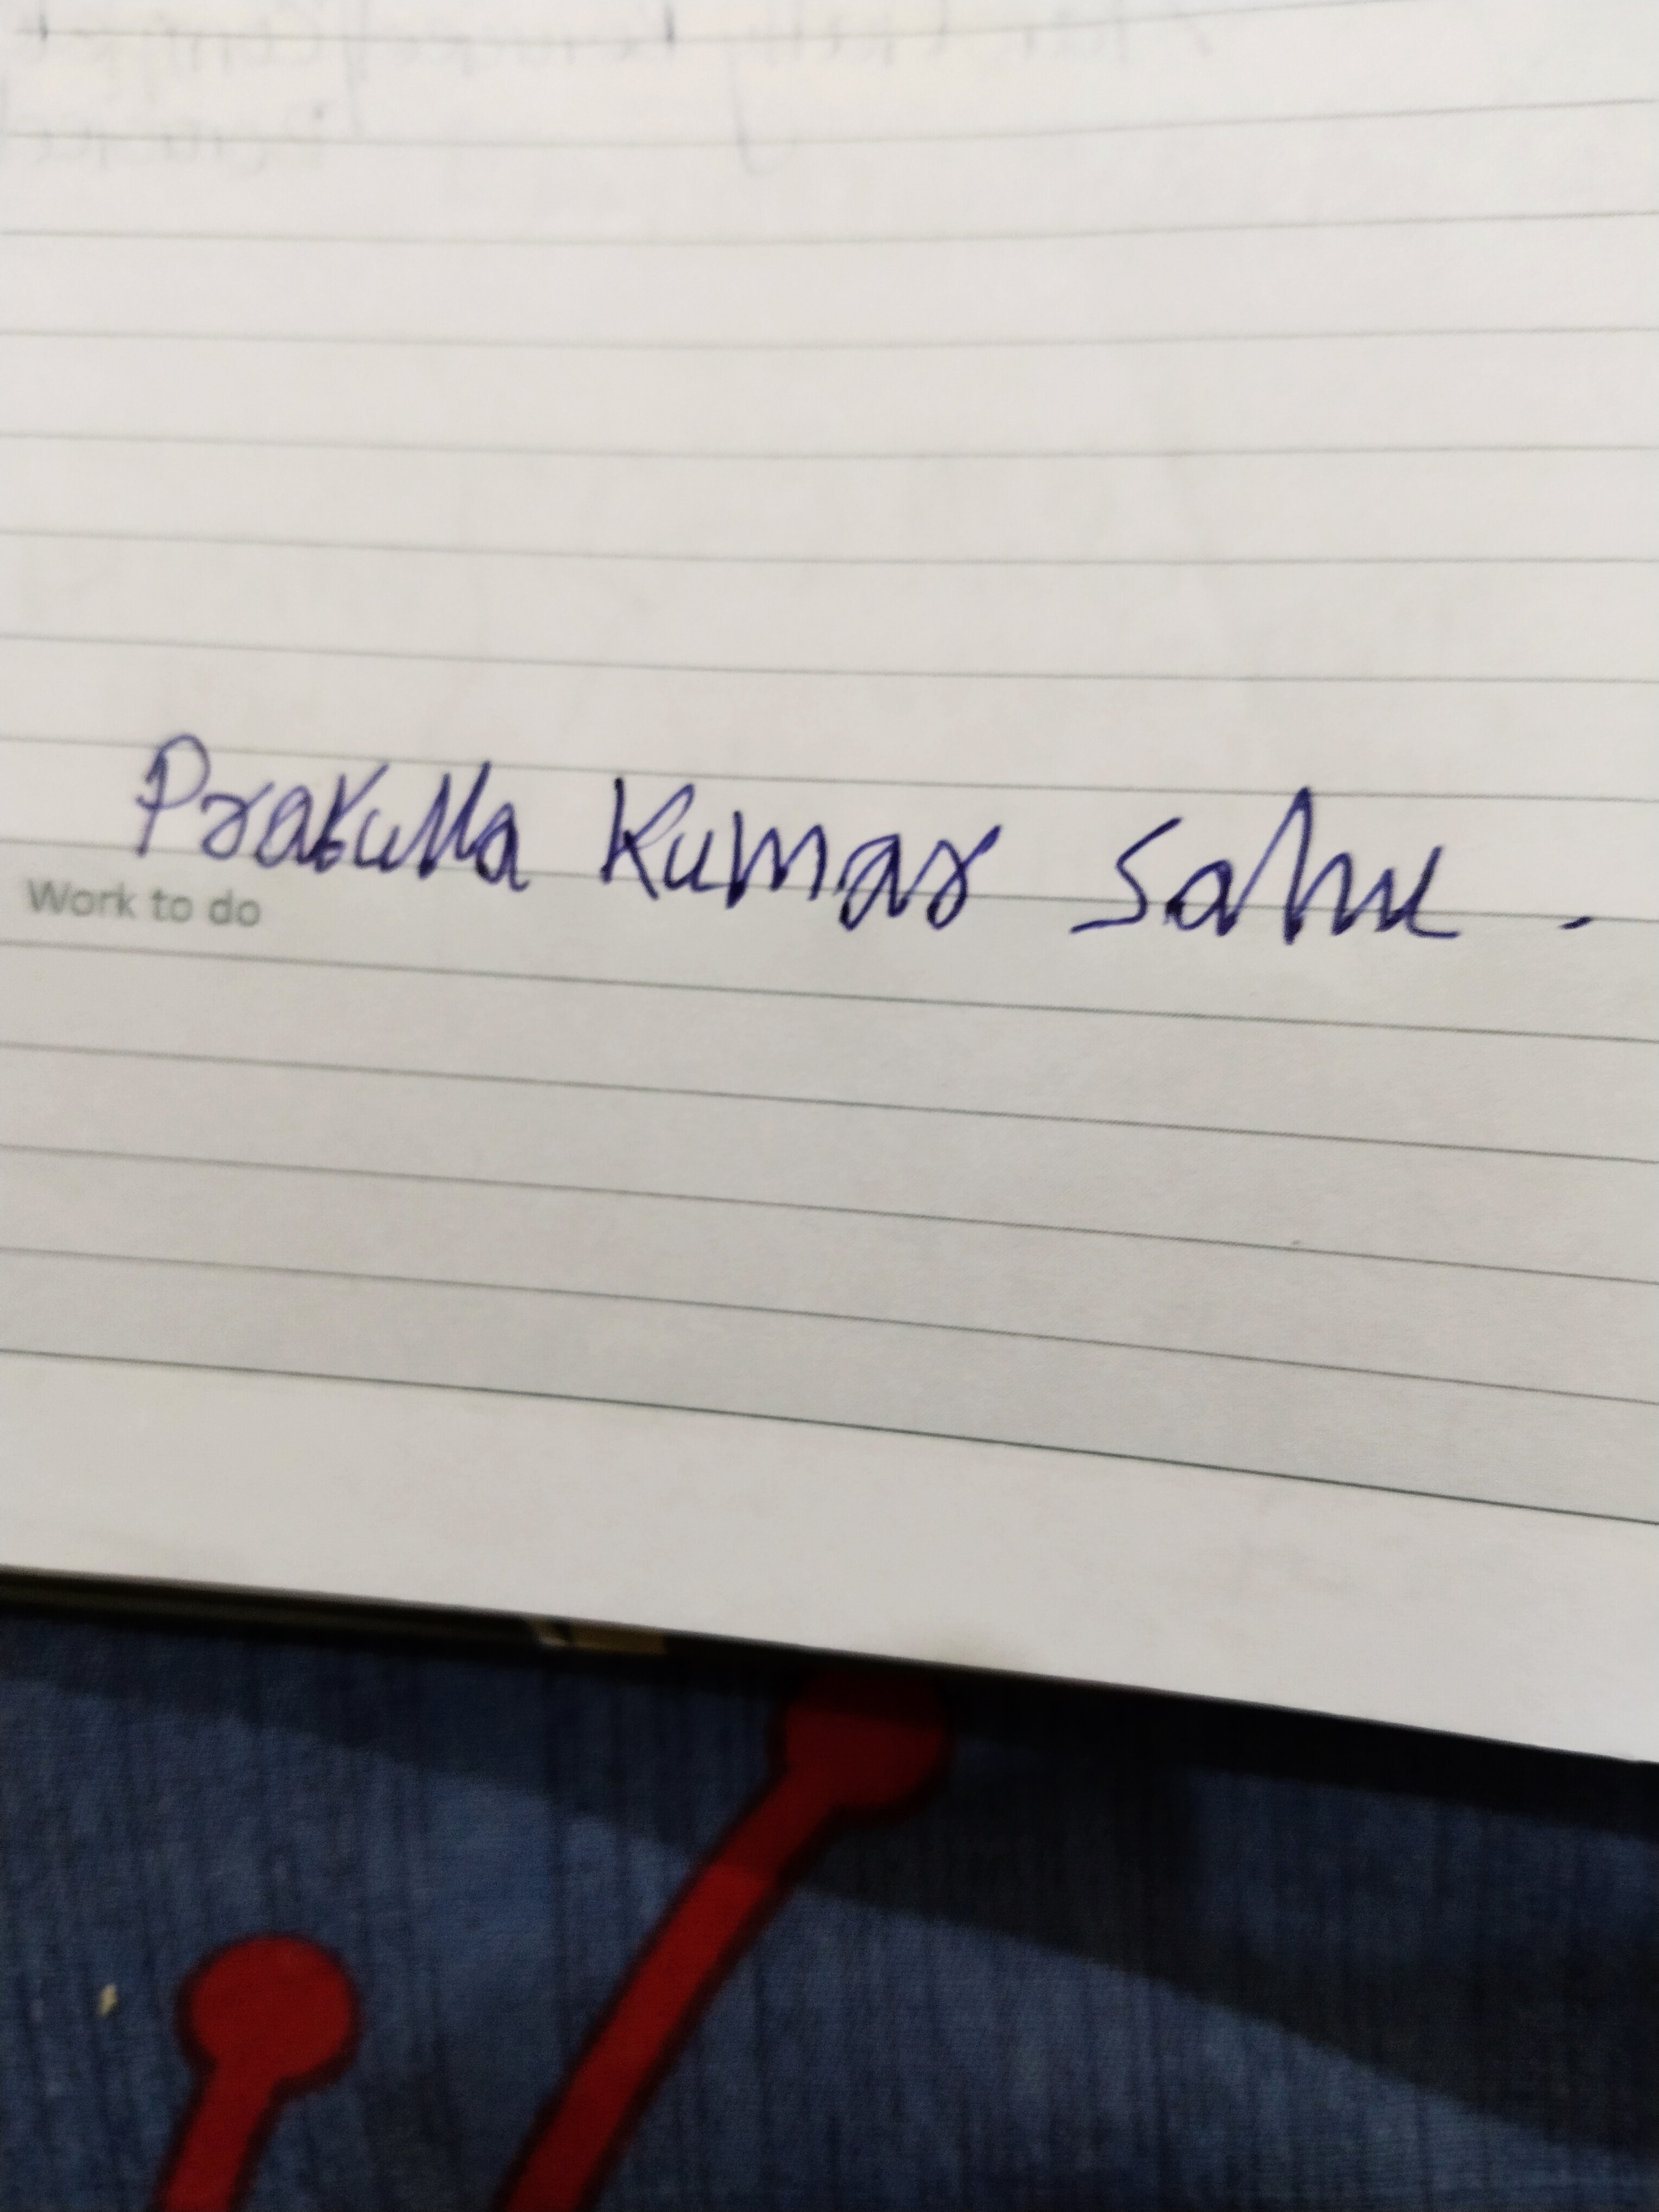 Prakulla Kumar Sahu.
Work to do